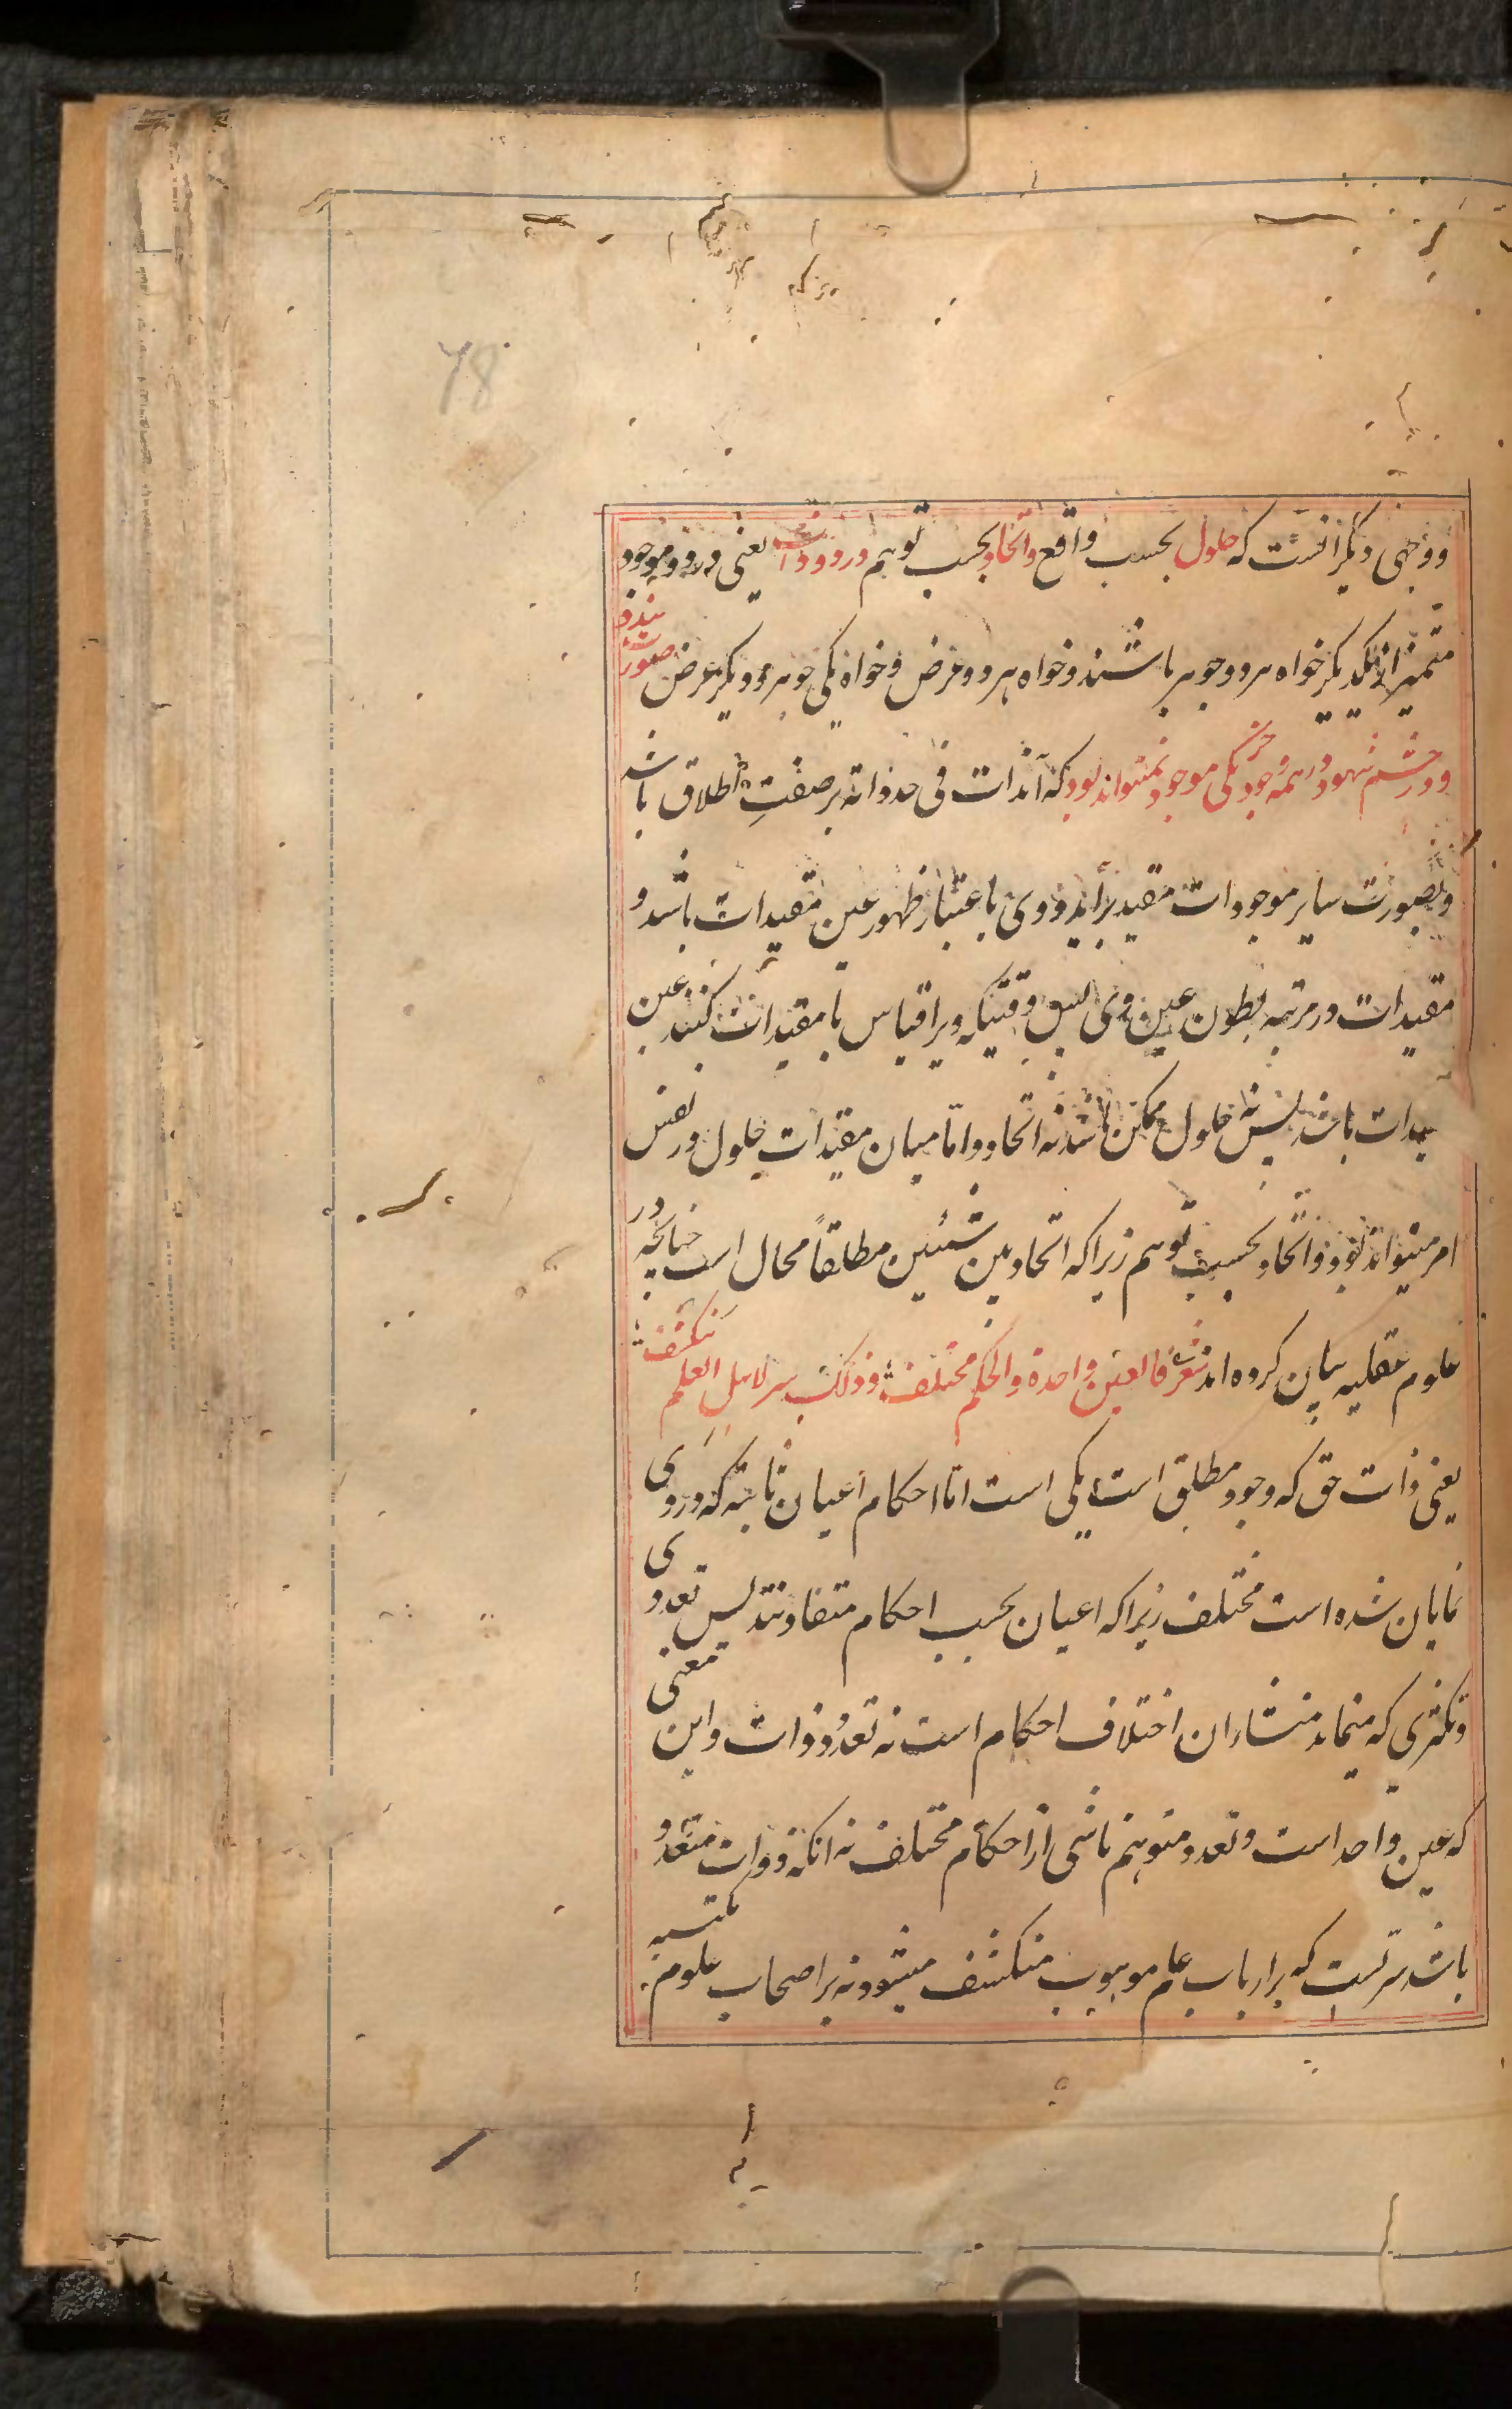 78
ووجهی دیگر انست که حلول بحسب واقع واتحاد بحسب توهم در دو ذات یعنی در دو موجود
متمیز از یکدیگر خواه هر دو جوهر باشند وخواه هر دو عرض وخواه یکی جوهر ودیگر عرض صورت بندد
ودر چشم شهود در همه وجود جز یکی موجود نمیتواند بود که آنذات فی حد ذاته بر صفتِ اطلاق باشد
وبصورت سایر موجودات مقید براید ووی باعتبار ظهور عین مقیدات باشد و
مقیدات در مرتبه بطون عین وی پس وقتیکه ویرا قیاس با مقیدات کنند عین
مقیدات باشد پس نه حلول ممکن باشد نه اتحاد واما میان مقیدات حلول در نفس
امر میتواند بود واتحاد بحسب توهم زیرا که اتحاد بین شیئین مطلقاً محال است چنانچه در
علوم عقلیه بیان کرده اند شعر فالعین واحدة والحکم مختلف وذلک سر لاهل العلم ینکشف
یعنی ذات حق که وجود مطلق است یکی است اما احکام اعیان ثابته که در وی
نمایان شده است مختلف زیرا که اعیان بحسب احکام متفاوتند پس تعددی
وتکثری که مینماید منشاء ان اختلاف احکام است نه تعدد ذات واین معنی
که عین واحد است وتعدد متوهم ناشی از احکام مختلف نه انکه ذوات متعدد
باشد سریست که بر ارباب علم موهوب منکشف میشود نه بر اصحاب علوم مکتسبه